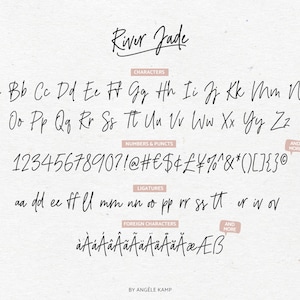 River Jade
CHARACTERS
Bb Cc Dd Ee Ff Gg Hh Ii Jj Kk Mm N
Oo Pp Qq Rr Ss Tt Uu Vv Ww Xx Yy Zz
NUMBERS & PUNCTS
1234567890?!@#€$¢£¥%^&*()[]{}©
LIGATURES
aa dd ee ff ll mm nn oo pp rr ss tt er iv ov
FOREIGN CHARACTERS
AND MORE
BY ANGÈLE KAMP